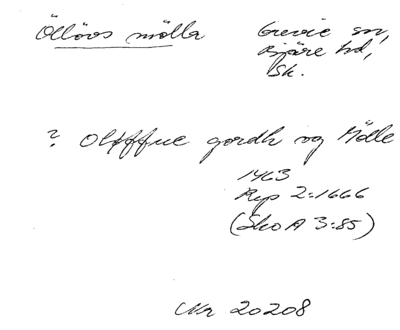 Öllövs mölla Grevie sn,
Bjäre hd,
Sk.
? gordh og Mölle
1463
Rep 2:1666
(SkoA 3:85)
Nr 20208